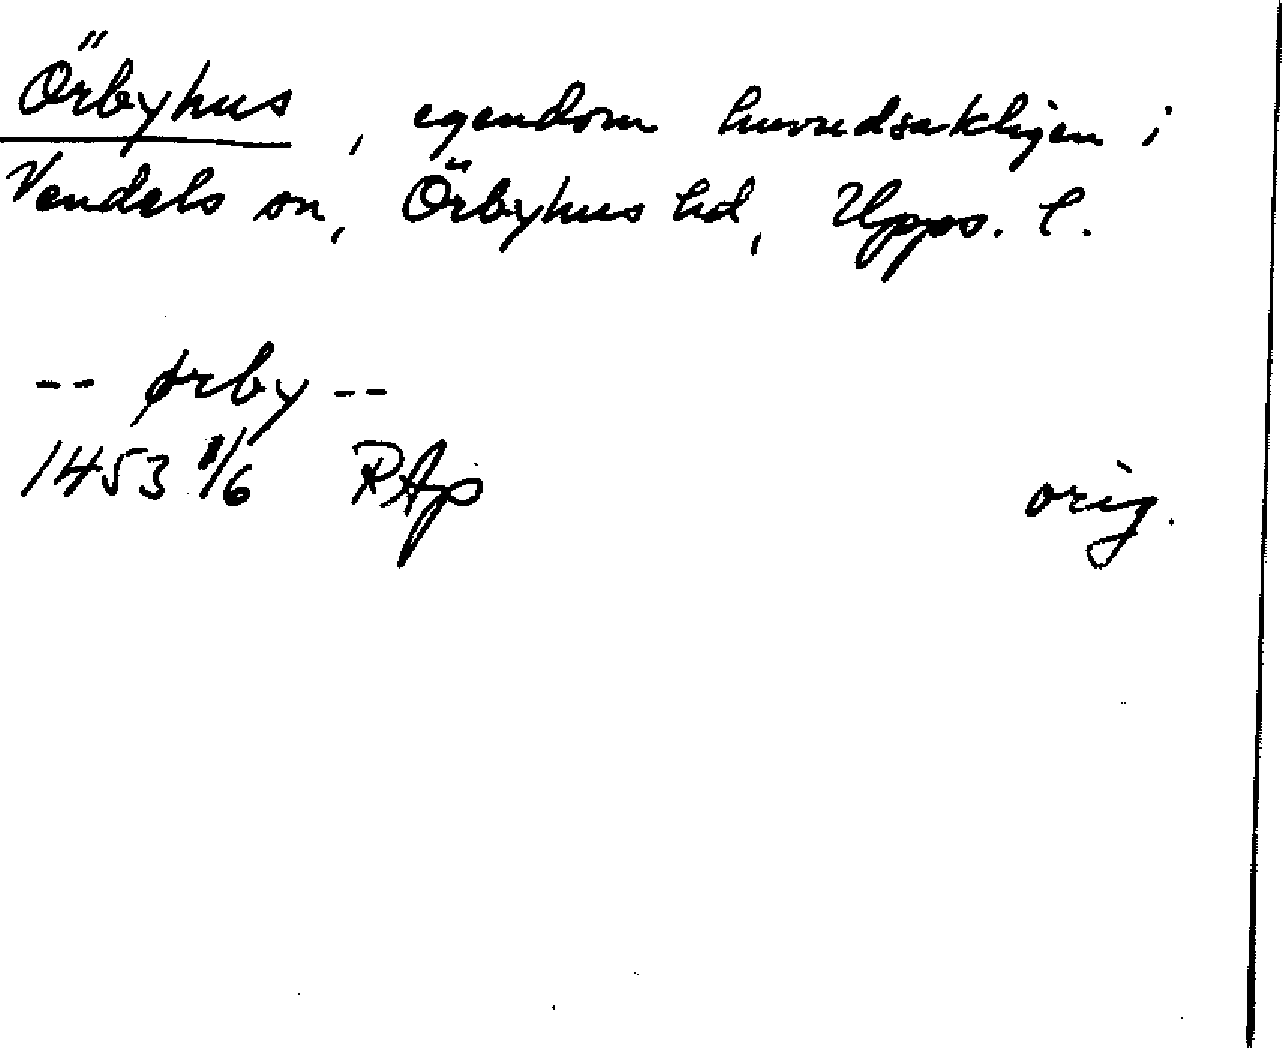 Örbyhus, egendom huvudsakligen i
Vendels sn, Örbyhus hd, Upps. l.
-- ørby --
1453 1/6 RAp orig.